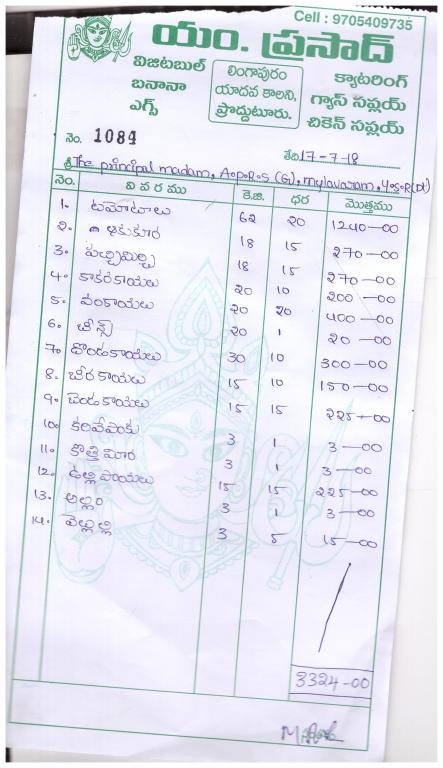 Cell : 9705409735
యం. ప్రసాద్
విజిటబుల్
బనానా
ఎగ్స్
లింగాపురం
యాదవ కాలని,
ప్రొద్దుటూరు.
క్యాటరింగ్
గ్యాస్ సప్లయ్
చికెన్ సప్లయ్
నెం. 1084
తేది 17-7-18
శ్రీ The principal madam, A.P.R.S (G), Mylavaram, Y.S.R(Dt)
నెం. వివరము కె.జి. ధర మొత్తము
1. టమోటాలు 62 20 1240-00
2. ఆకుకూర 18 15 270-00
3. పచ్చిమిర్చి 18 15 270-00
4. కాకరకాయలు 20 10 200-00
5. వంకాయలు 20 20 400-00
6. బీన్స్ 20 1 20-00
7. దొండకాయలు 30 10 300-00
8. బీరకాయలు 15 10 150-00
9. బెండకాయలు 15 15 225-00
10. కరివేపాకు 3 1 3-00
11. కొత్తిమీర 3 1 3-00
12. ఉల్లిపాయలు 15 15 225-00
13. అల్లం 3 1 3-00
14. వెల్లుల్లి 3 5 15-00
3324-00